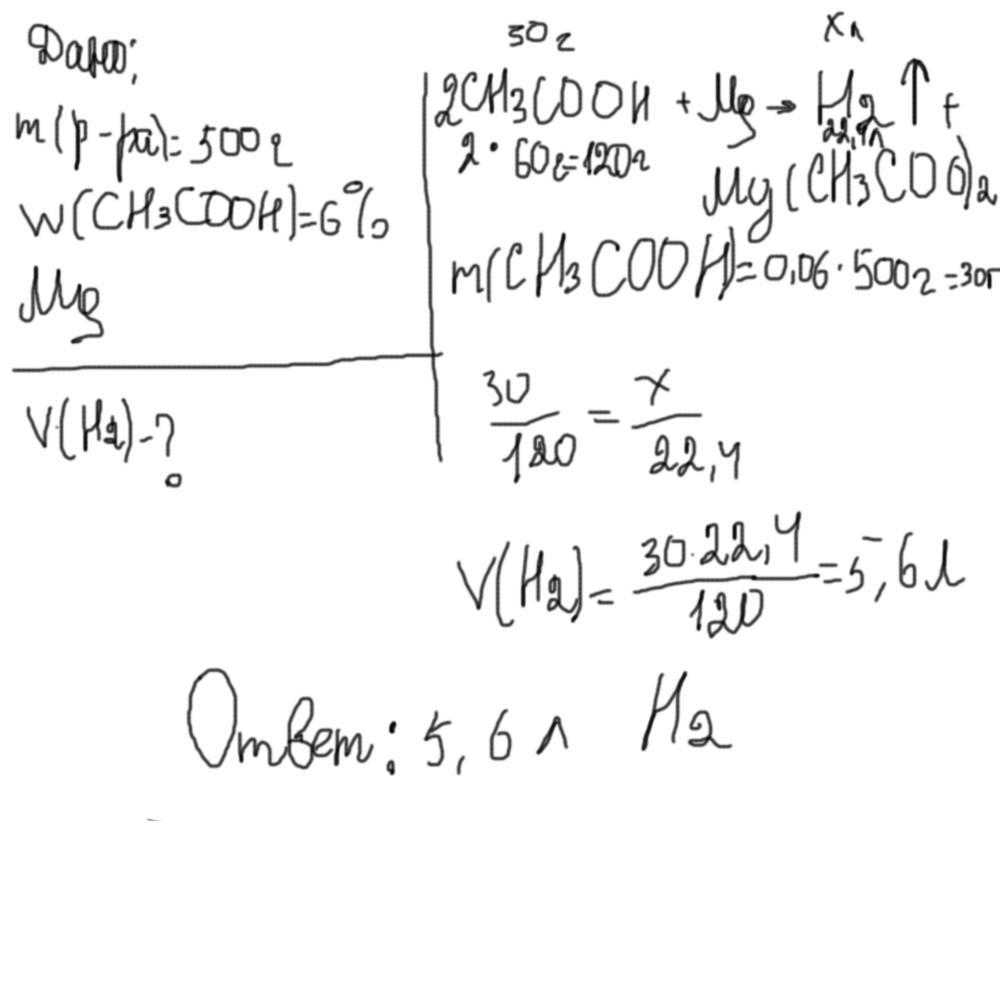 Дано:
m(р-ра)=500г
w(CH3COOH)=6%
Mg
V(H2)-?
30г xл
2CH3COOH + Mg → H2↑ +
2·60г=120г 22,4л
Mg(CH3COO)2
m(CH3COOH)=0,06·500г=30г
30/120 = x/22,4
V(H2)= 30·22,4/120 =5,6л
Ответ: 5,6 л H2